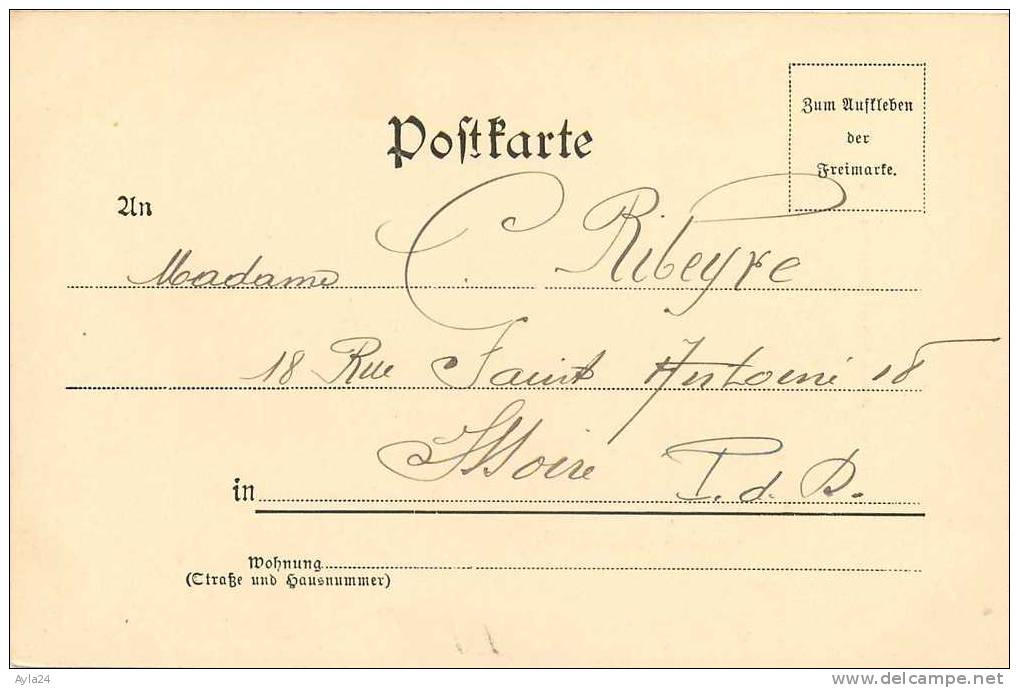 Postkarte
Zum Aufkleben
der
Freimarke.
An
Madame C. Ribeyre
18 Rue Saint Antoine 18
in Issoire P. d. D.
Wohnung
(Straße und Hausnummer)
Ayla24
www.delcampe.net